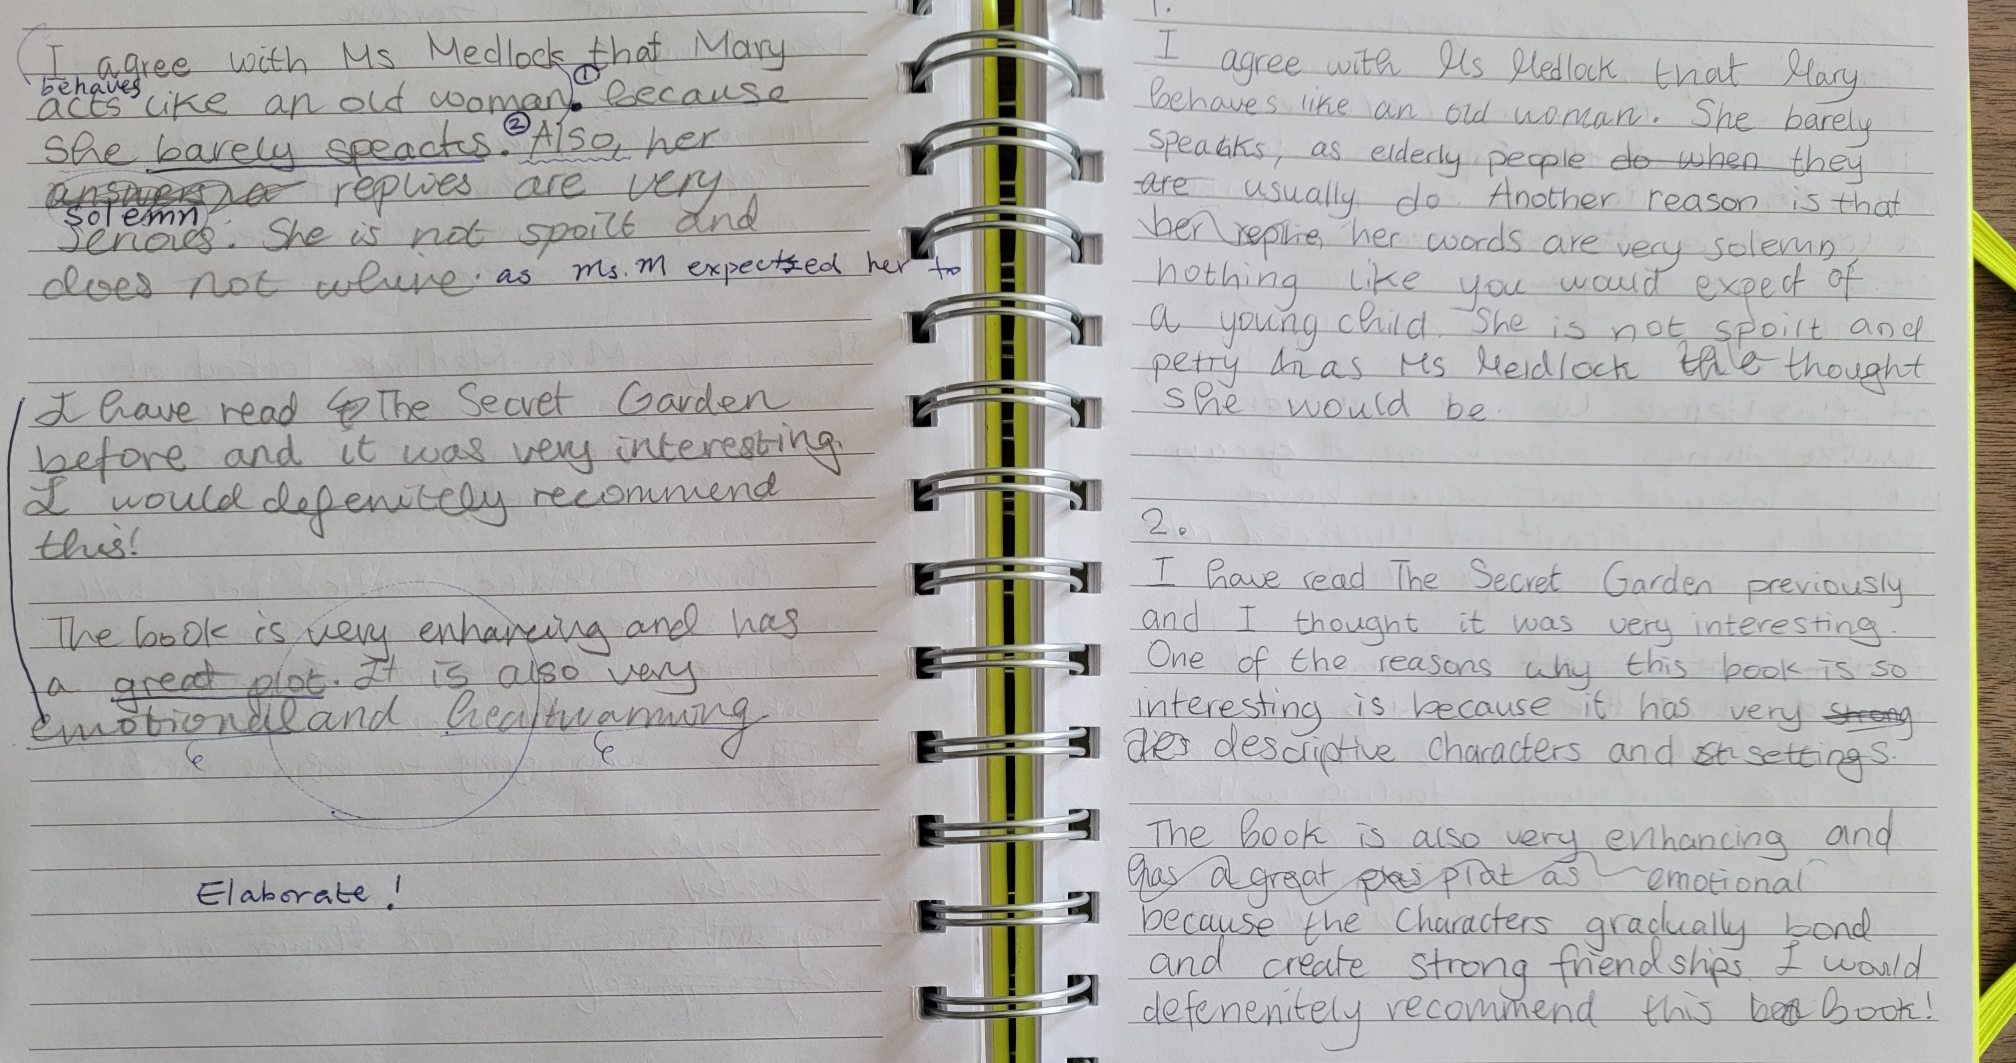 I agree with Ms Medlock that Mary
behaves ①
acts like an old woman. because
she barely speacks. ② Also, her
answers replies are very
solemn
serioes. She is not spoilt and
does not whine. as Ms. M expected her to
I have read The Secret Garden
before and it was very interesting.
I would defenitely recommend
this!
The book is very enhancing and has
a great plot. It is also very
emotional and heartwarming
Elaborate!
1.
I agree with Ms Medlock that Mary
behaves like an old woman. She barely
speaks, as elderly people do when they
are usually do. Another reason is that
her replie, her words are very solemn,
nothing like you would expect of
a young child. She is not spoilt and
petty as Ms Meldlock the thought
she would be.
2.
I have read The Secret Garden previously
and I thought it was very interesting.
One of the reasons why this book is so
interesting is because it has very strong
des descriptive characters and st settings.
The book is also very enhancing and
has a great plot as emotional
because the characters gradually bond
and create strong friendships. I would
defenenitely recommend this book!